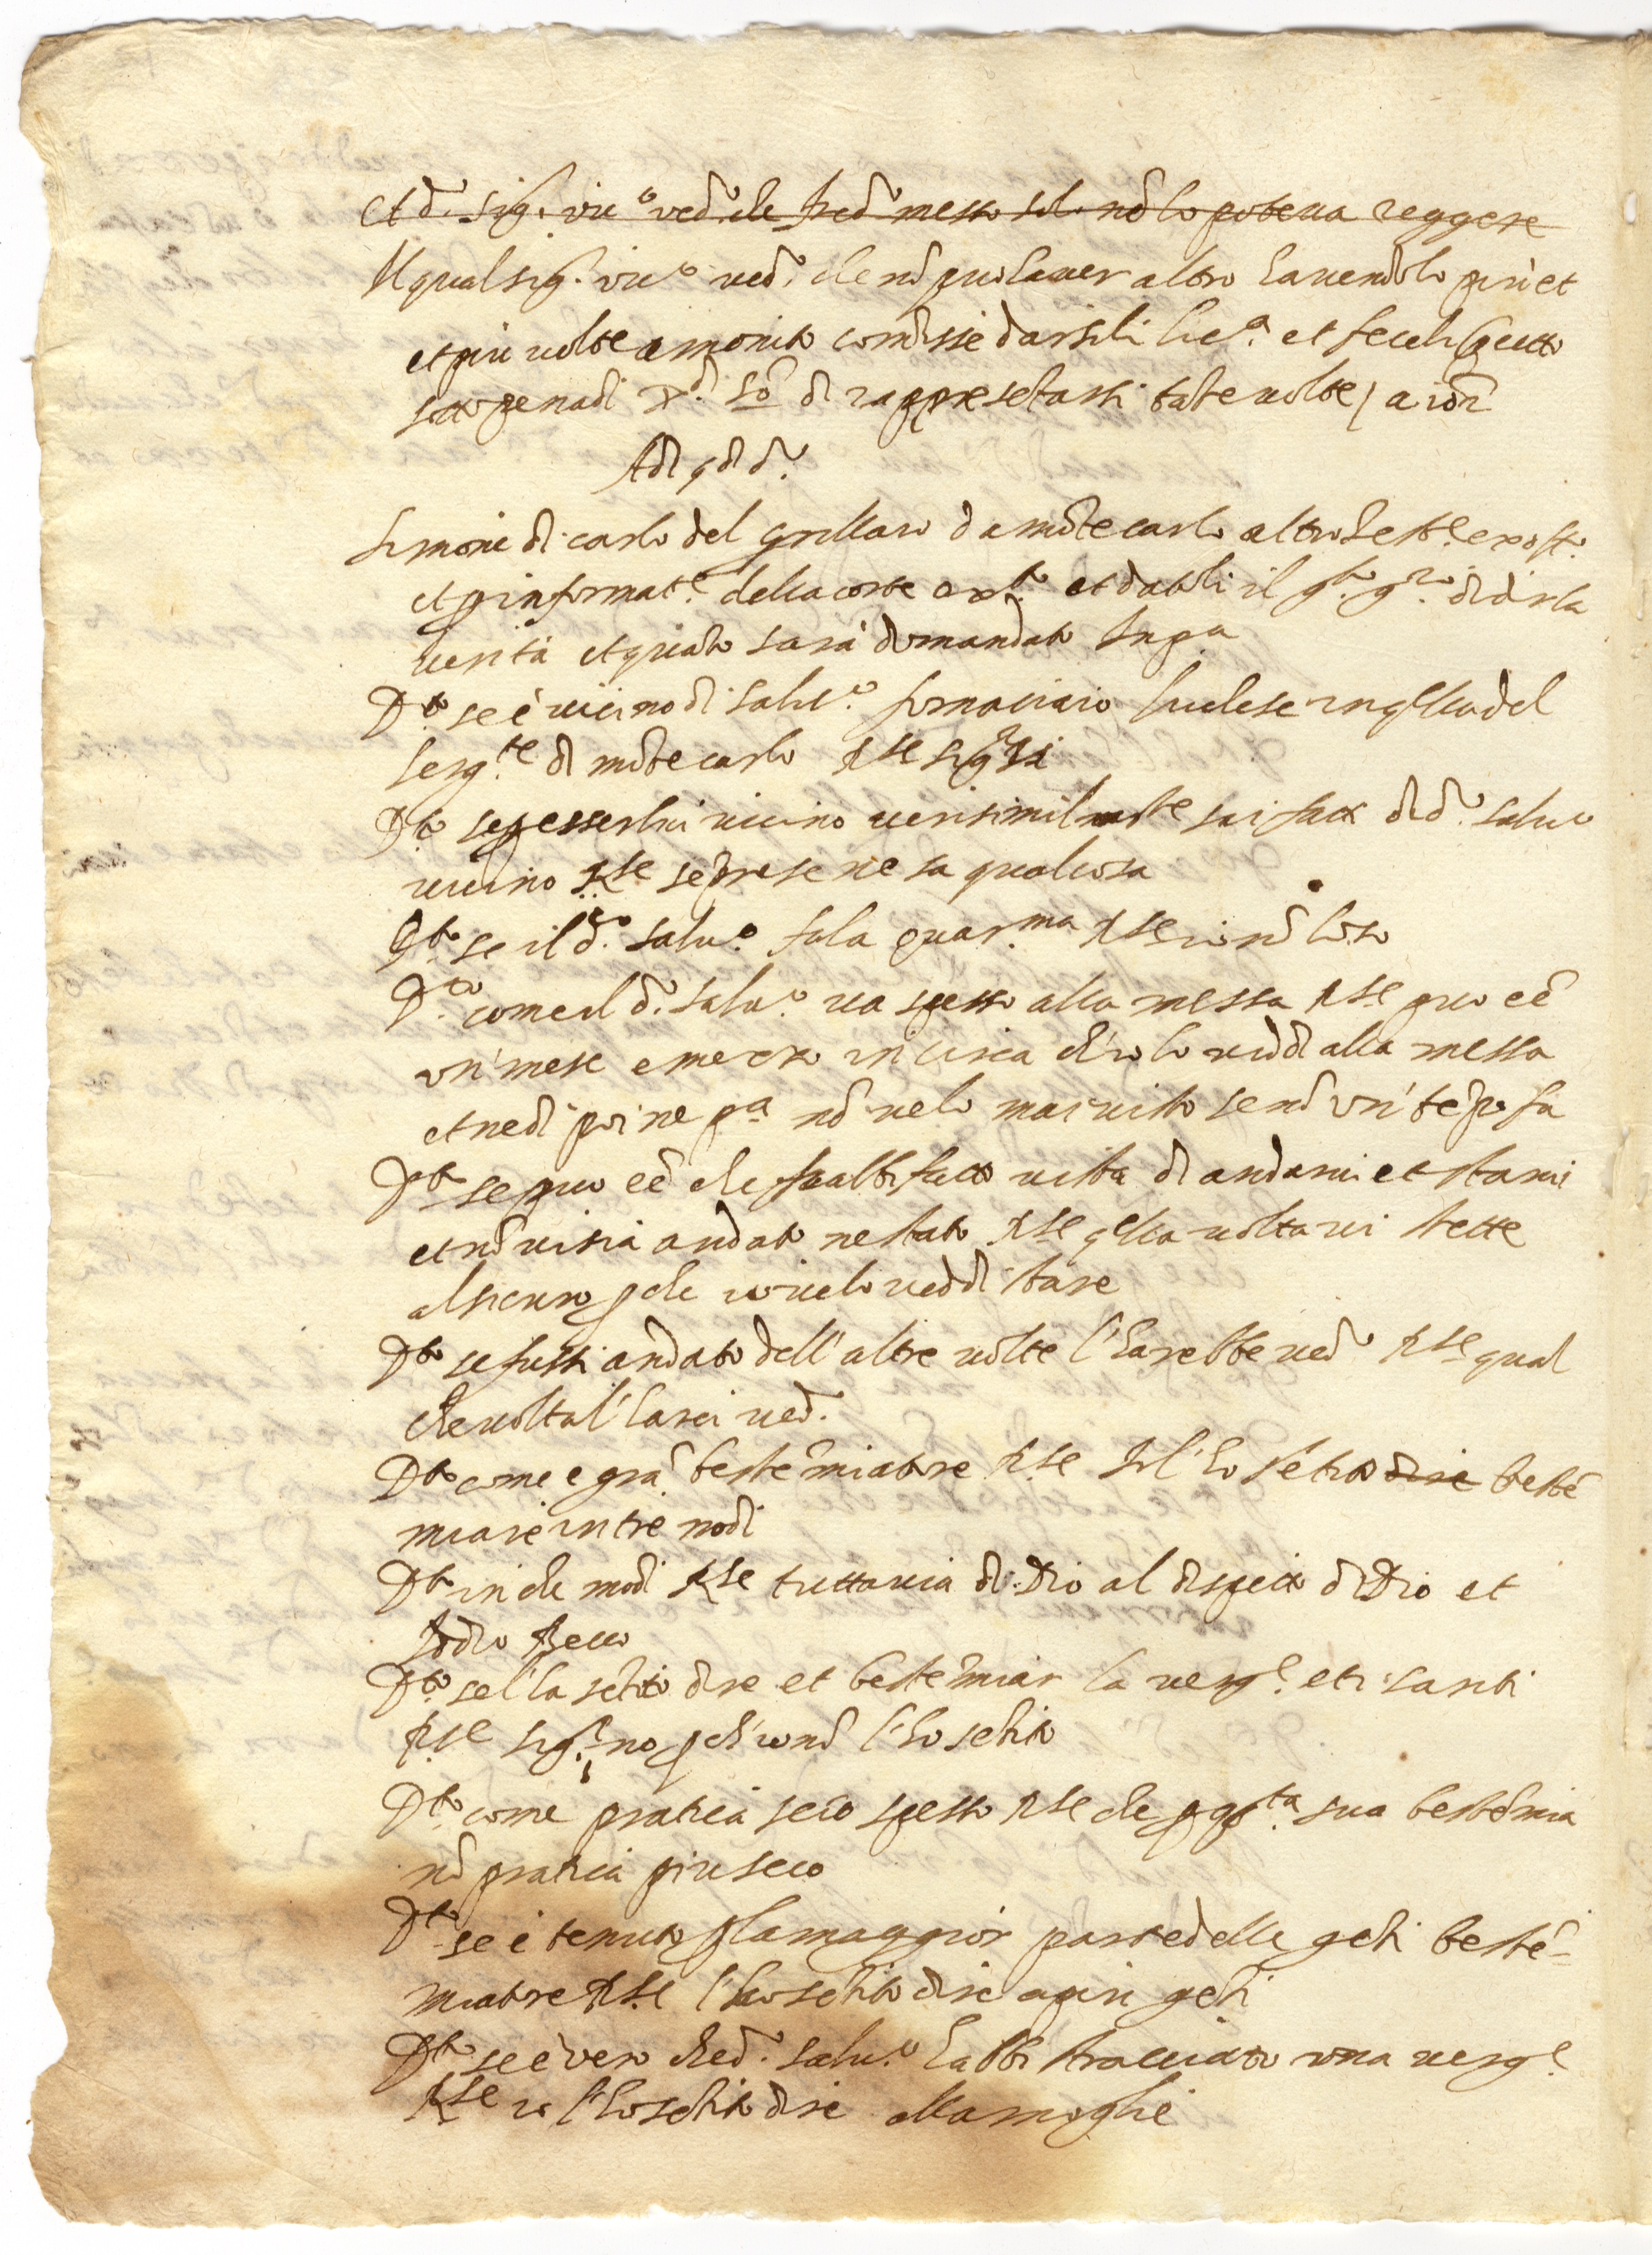 et d.º sig.r vic.º ved.º che fred.º messo sol. nō lo poteva reggere
Il qual sig.r vic.º ved.º che nō può haver altro havendolo più et
et più volte amonito comisse darseli lic.a et feceli pcetto
sotto pena di di rappresētarsi tāte volte
Adi q.º di d.º
Simone di carlo del grillaro da mōte carlo altro test.e
et p informat.e della corte et datoli il di dir la
verità et quāto sarà domandato
D.to se è vicino di salv.e fornaciaio luchese in qlla del
serg.te di mōte carlo R.se sig.r sì
D.to se p esserli vicino verisimilmēte sa i fatti di d.º salv.e
vicino R.se se pre se ne sa qualcosa
D.to se il d.º salv.e fa la quar.ma R.se io nō lo so
D.to come il d.º salv.e va spesso alla messa R.se può eē
un' mese e mezzo in circa ch'io lo viddi alla messa
et nè di poi nè p.a nō ve lo mai visto se nō un' tēpo fa
D.to se può eē che habbi fatto vista di andarvi et starvi
et nō vi sia andato ne stato R.se qlla volta vi stette
al sicuro pche io ve lo veddi stare
D.to se fussi andato dell'altre volte l'harebbe ved.º R.se qual
che volta l'harei ved.º
D.to come è grā bestēmiatore R.se Io l'ho sētito dire bestē
miare in tre modi
D.to in che modi R.se tuttavia di Dio al dispetto di Dio et
Iddio Becco
D.to se l'ha sētito dire et bestēmiar la verg.e et i santi
R.se sig.r no pch'io nō l'ho sētito
D.to come pratica seco spesso R.se che p q.sta sua bestēmia
nō pratica più seco
D.to se è tenuto p la maggior parte delle gēti bestē=
miatore R.se l'ho sētito dire a più gēti
D.to se è vero che d.º salv.e habbi stracciato una verg.e
R.se io l'ho sētito dire alla moglie